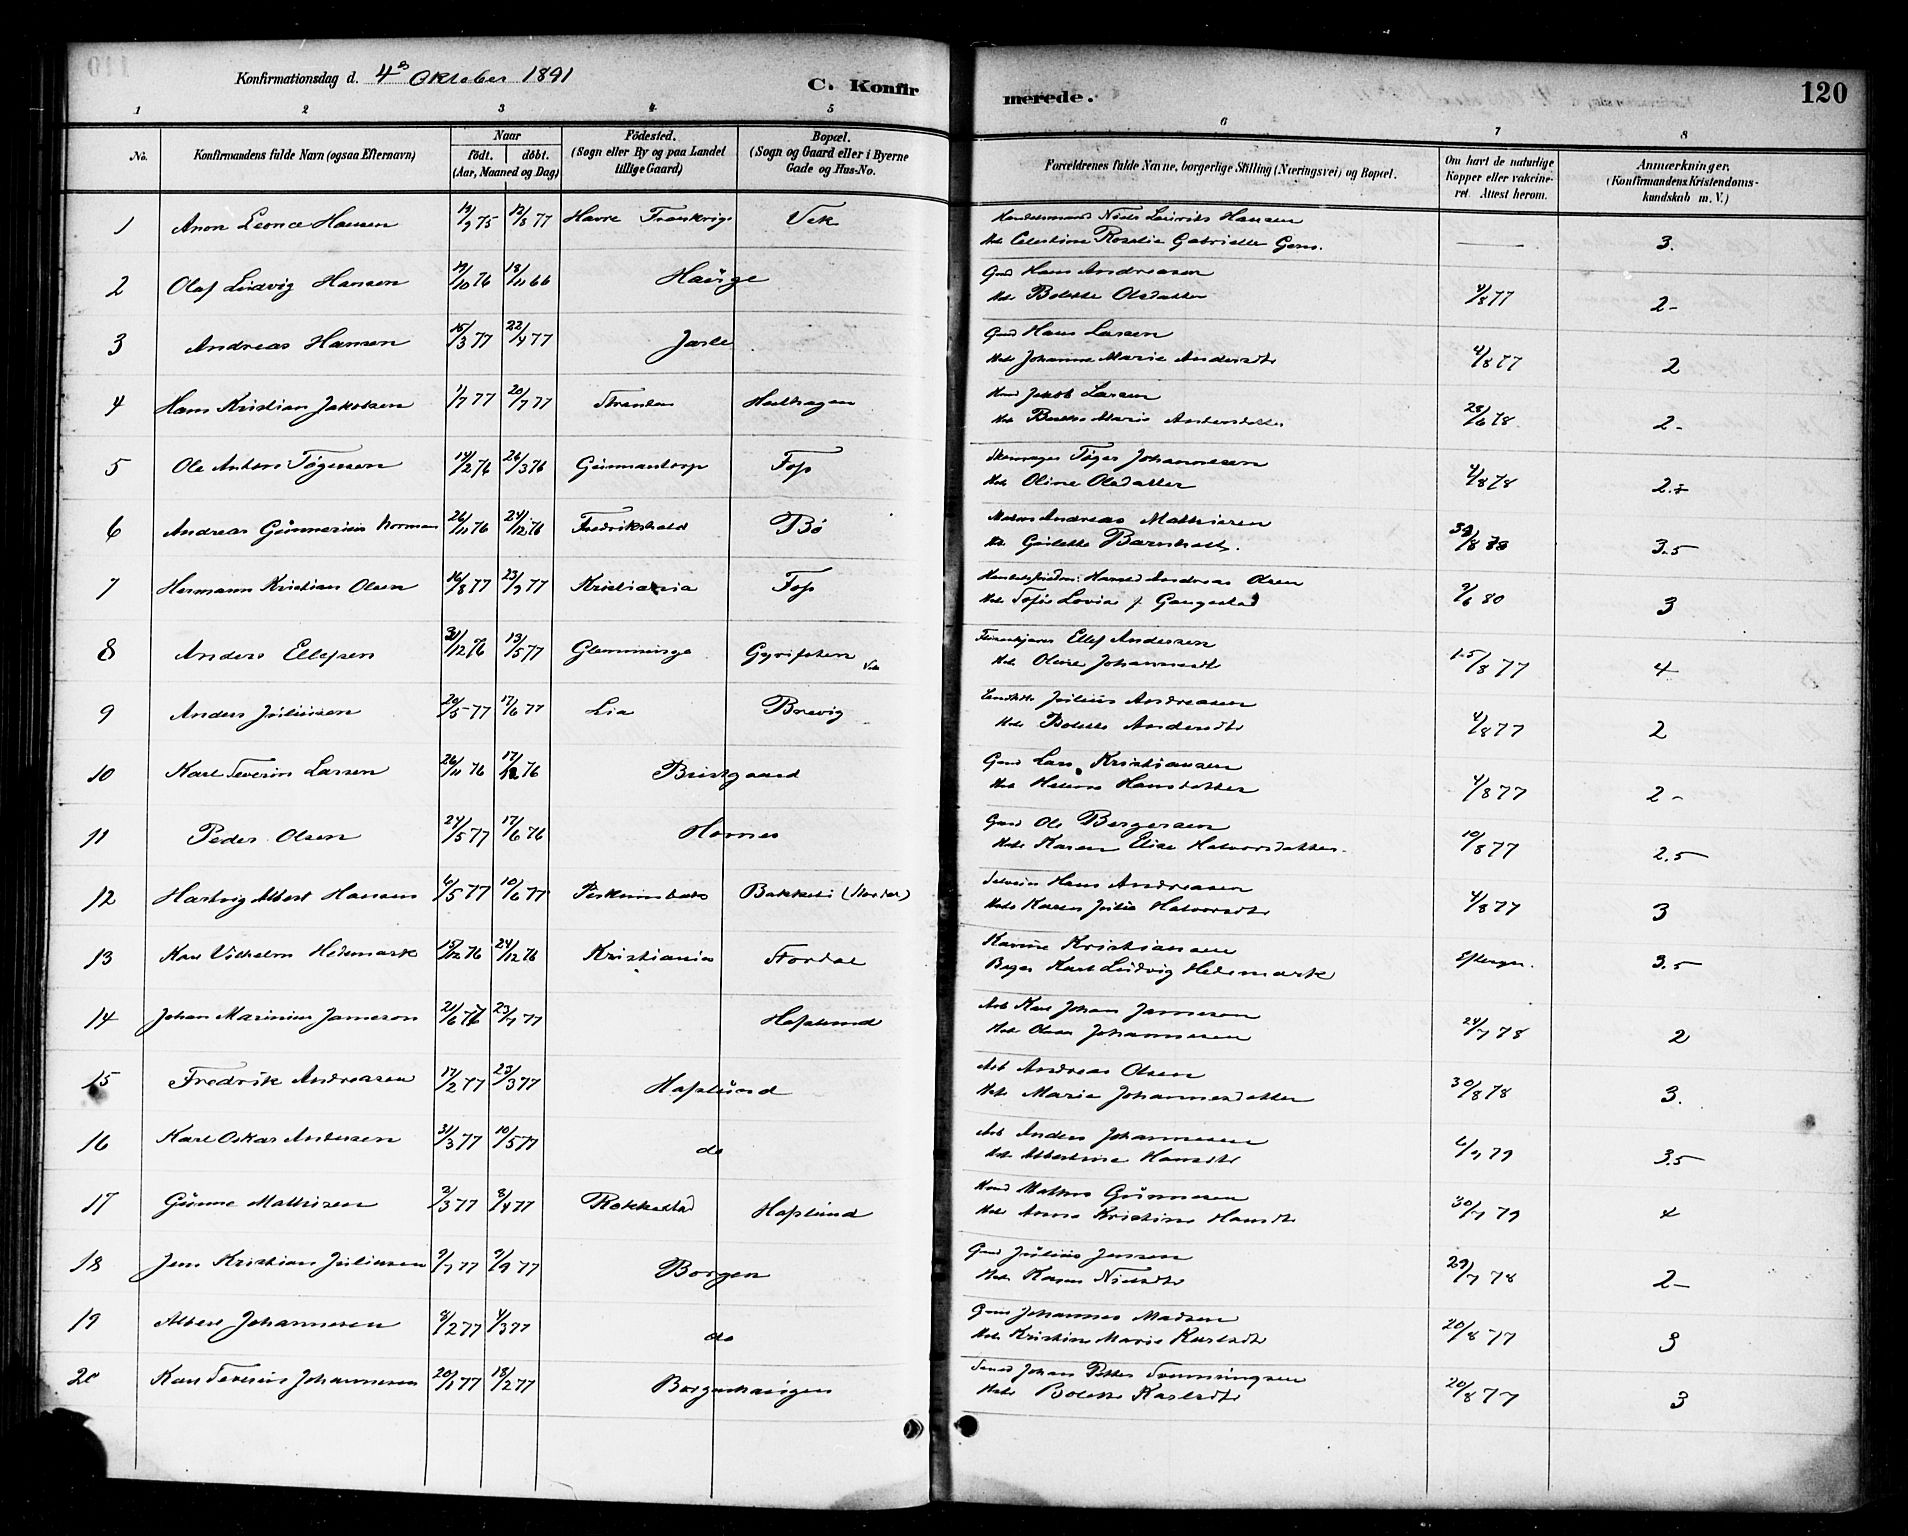 Konfirmationsdag d. 4de Oktober 1891
C. Konfirmerede.
120
1 2 3 4 5 6 7 8
No. Konfirmandens fulde Navn (ogsaa Efternavn) Naar født. døbt. (Aar, Maaned og Dag) Fødested. (Sogn eller By og paa Landet tillige Gaard) Bopæl. (Sogn og Gaard eller i Byerne Gade og Hus-No. Forældrenes fulde Navne, borgerlige Stilling (Næringsvei) og Bopæl. Om havt de naturlige Kopper eller vakcineret. Attest herom. Anmærkninger, (Konfirmandens Kristendomskundskab m. V.)
1 Anon Leonce Hansen 19/9 75 12/8 77 Havre Frankrige Vek Niels Ludvik Hansen — 3.
Celestine Rosalie Gabrielle
2 Olaf Ludvig Hansen 19/10 76 18/11 66 Hauge Gmd Hans Andreasen
Hst Bolette Olsdatter 4/8 77 2-
3 Andreas Hansen 15/3 77 22/4 77 Jarle Gmd Hans Larsen
Hst Johanne Marie Andersdtr 4/8 77 2
4 Hans Kristian Jakobsen 1/7 77 20/7 77 Hmd Jakob Larsen
Hst Marie Andersdatter 28/6 78 2-
5 Ole Anton Tøgersen 14/2 76 26/3 76 Gunmantorp Fop Skomager Tøger Johannesen
Hst Oline Olsdatter 4/8 78
6 Andreas Gunnerius Norman 26/11 76 24/12 76 Fredrikshald Bø Andreas Mathiesen
3.5
7 Hermann Kristian Olsen 16/8 77 23/9 77 Kristiania Fop Harald Andreas Olsen
Hst Sofie Lovise f. Gangestad 9/6 80 3
8 Anders Ellefsen 31/12 76 13/5 77 Glemminge Ellef Andersen
Hst Oline Johannesdt 15/8 77 4
9 Anders Juliussen 20/5 77 17/6 77 Lia Brevig Julius Andreasen
Hst Bolette Andersdtr 4/8 77 2
10 Karl Severin Larsen 26/11 76 17/12 76 Bristgaard Gmd Lars Kristiansen
Hst Helene Hansdatter 4/8 77 2-
11 Peder Olsen 24/5 77 17/6 76 Hornes Gmd Ole Bergersen
Hst Karen Elise Halvorsdatter 10/8 77 2.5
12 Hartvig Albert Hansen 4/5 77 10/6 77 Bakkeli (Stordal) Hans Andreasen
Hst Karen Julie Halvorsdtr 4/8 77 3
13 Karl Vilhelm Hedemark 15/12 76 24/12 76 Kristiania Stordal Karine Kristiansen
Bager Karl Ludvig Hedemark 3.5
14 Johan Marinius Jameson 21/6 77 23/7 77 Hafslund Arb Karl Johan Jameson
Hst Olava Johannesen 24/7 78 2
15 Fredrik Andreasen 17/2 77 23/3 77 Hafslund Arb Andreas Olsen
Hst Marie Johannesdatter 30/8 78 3.
16 Karl Oskar Andersen 31/3 77 10/5 77 do Arb Anders Johannesen
Hst Albertine Hansdtr 6/9 79 3.5
17 Gunne Mathisen 2/3 77 8/4 77 Rakkestad Hafslund Hmd Mathis Gunnesen
Hst Anne Kristine Hansdtr 30/7 79 4
18 Jens Kristian Juliusen 2/7 77 2/9 77 Borgen Gmd Julius Jensen
Hst Karen Nielsdtr 29/7 78 2-
19 Albert Johannesen 8/2 77 4/3 77 do Gmd Johannes Madsen
Hst Kristine Marie Karlsdtr 20/8 77 3
20 Karl Severin Johannesen 20/1 77 18/2 77 Borgenhaugen Johan Petter Svenningsen
Hst Bolette Karlsdtr 20/8 77 3